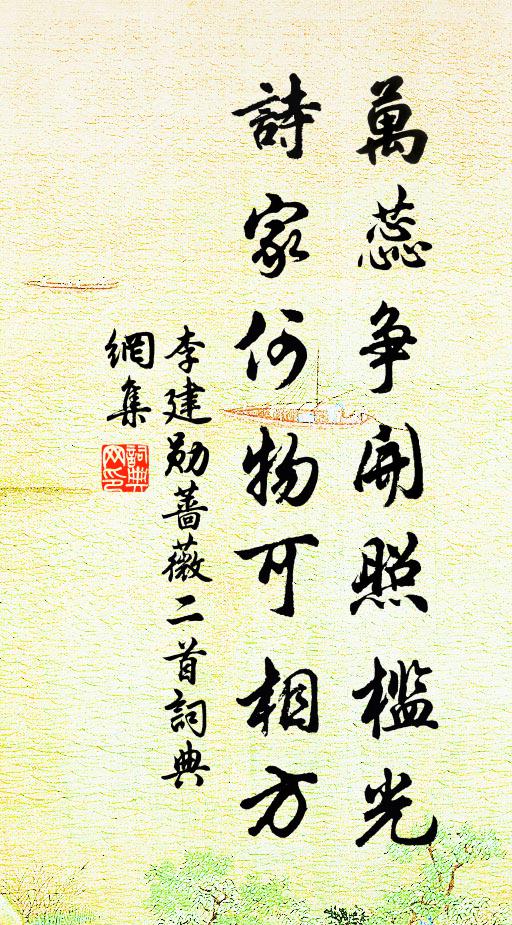 萬蕊争開照檻光
詩家何物可相方
李建勛薔薇二首詞典
網集
詞典
网印